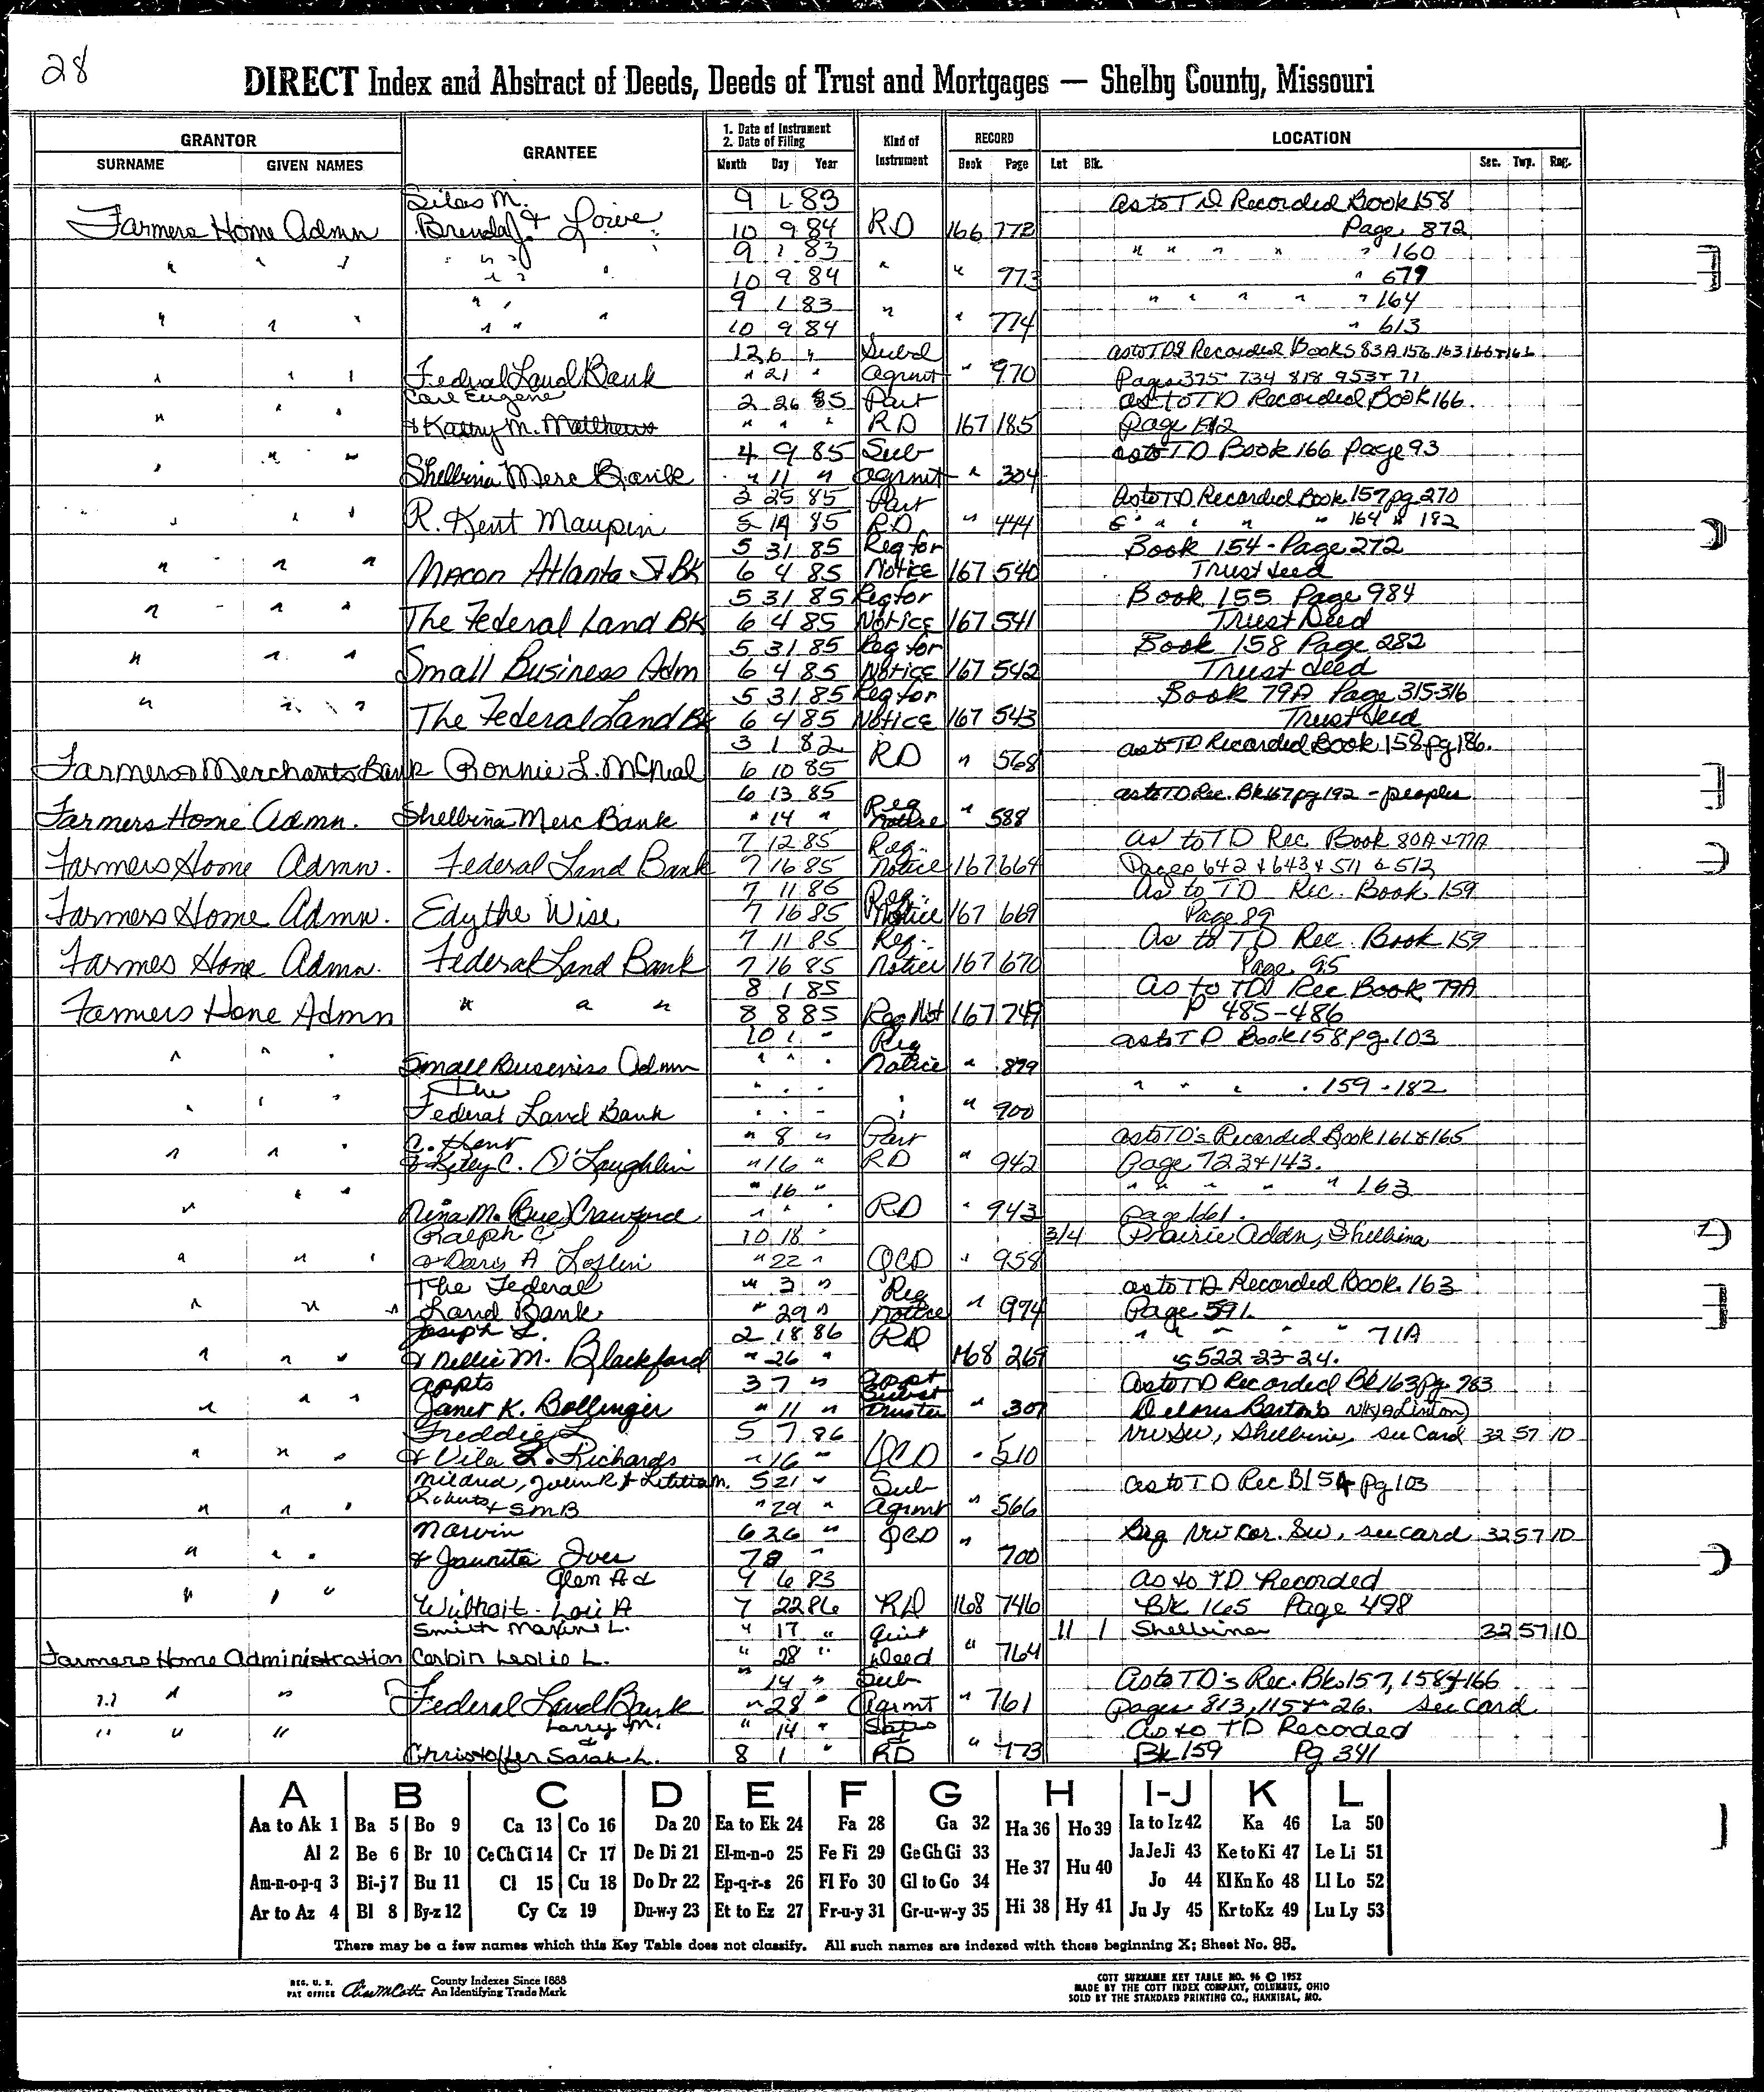 28
DIRECT Index and Abstract of Deeds, Deeds of Trust and Mortgages — Shelby County, Missouri
GRANTOR GRANTEE 1. Date of Instrument 2. Date of Filing Kind of Instrument RECORD LOCATION
SURNAME GIVEN NAMES Month Day Year Book Page Lot Blk. Sec. Twp. Rng.
Silas M. 9 1 83 as to TD Recorded Book 158
Farmers Home Admn Brenda J. & Lowe 10 9 84 RD 166 772 Page 872
" " " " " 9 1 83 " " " " " 160
" " 10 9 84 " " 973 " 679
" " 9 1 83 " " " " " 164
" " " " " " 10 9 84 " " 774 " 613
12 6 " Subd as to TDS Recorded Books 83A 156 163 166 & 166
" " " Federal Land Bank " 21 " Agrmt " 970 Pages 375 734 818 953 & 71
Carl Eugene 2 26 85 Part as to TD Recorded Book 166
" " " & Kathy M. Matthews " " " RD 167 185 Page
4 9 85 Sub as to TD Book 166 Page 93
" " " Shelbina Merc Bank " 11 " Agrmt " 304
2 25 85 Part As to TD Recorded Book 157 pg 270
" " " R. Kent Maupin 5 14 85 RD " 444 " " " " 164 " 182
5 31 85 Req for Book 154 - Page 272
" " " Macon Atlanta St Bk 6 4 85 Notice 167 540 Trust deed
5 31 85 Req for Book 155 Page 984
" " " The Federal Land Bk 6 4 85 Notice 167 541 Trust Deed
5 31 85 Req for Book 158 Page 282
" " " Small Business Adm 6 4 85 Notice 167 542 Trust deed
5 31 85 Req for Book 79A Page 315-316
" " " The Federal Land Bk 6 4 85 Notice 167 543 Trust deed
3 1 82 RD as to TD Recorded Book 158 pg 186.
Farmers Merchants Bank Ronnie L. McNeal 6 10 85 " 568
6 13 85 Req as to TD Rec. Bk 167 pg 192 - peoples
Farmers Home Admn. Shelbina Merc Bank " 14 " Notice " 588
7 12 85 Req. as to TD Rec Book 80A & 77A
Farmers Home Admn. Federal Land Bank 7 16 85 Notice 167 664 Pages 642 & 643 & 511 & 512
7 11 85 Req. As to TD Rec. Book 159
Farmers Home Admn. Edythe Wise 7 16 85 Notice 167 669 Page 89
7 11 85 Req. As to TD Rec. Book 159
Farmes Home Admn. Federal Land Bank 7 16 85 Notice 167 670 Page 95
8 1 85 As to TD Rec Book 79A
Farmers Home Admn " " " 8 8 85 Req Not 167 749 P 485-486
10 1 " Req as to TD Book 158 pg 103
" " " Small Business Admn " " " Notice " 899
The " " " " " " " 159 - 182
" " " Federal Land Bank " " " " " 900
" 8 " Part as to TD's Recorded Book 161 & 165
" " " & Kitey C. O'Laughlin " 16 " RD " 942 Page 723 & 143.
" 16 " " " " " " 163
" " " Nina M. (Bue) Crawford " " " RD " 943 Page 661.
Ralph C 10 18 " 3/4 Prairie Addn, Shelbina
" " " & Doris A Loflin " 22 " QCD " 958
The Federal " 3 " Req as to TD Recorded Book 163
" " " Land Bank " 29 " Notice " 994 Page 591.
Joseph L. 2 18 86 RD " " " " " 71A
" " " & Nellie M. Blackford " 26 " 168 269 's 522-23-24.
appts 3 7 " Appt Subst As to TD Recorded Bk 163 pg. 783
" " " Janet K. Bollinger " 11 " Trustee " 307 Delores Barton's N/K/a Linton)
Freddie L 5 7 86 NW SW, Shelbina, see Card 32 57 10
" " " & Vila L. Richards " 16 " QCD " 510
Mildred, John R & Letitia M. 5 21 " Sub as to TD Rec B 154 pg 103
" " " Roberts & SMB " 29 " Agrmt " 566
Marvin 6 26 " QCD Beg NW Cor. SW, see card 32 57 10
" " " & Jaunita Ives 7 8 " " 700
Glen A & 9 6 83 As to TD Recorded
" " " Wilhoit Lori A 7 22 86 RD 168 746 BK 165 Page 498
Smith Maxine L. " 17 " Quit 11 1 Shelbina 32 57 10
Farmers Home Administration Corbin Leslie L. " 28 " Deed " 764
" 14 " Sub As to TD's Rec. Bk. 157, 158 & 166
" " " Federal Land Bank " 28 " Agrmt " 761 Pages 813, 115 & 26. see Card
Larry M. & " 14 " As to TD Recoded
" " " Christoffer Sarah L. 8 1 " RD " 773 Bk 159 Pg 341
A B C D E F G H I-J K L
Aa to Ak 1 Ba 5 Bo 9 Ca 13 Co 16 Da 20 Ea to Ek 24 Fa 28 Ga 32 Ha 36 Ho 39 Ia to Iz 42 Ka 46 La 50
Al 2 Be 6 Br 10 Ce Ch Ci 14 Cr 17 De Di 21 El-m-n-o 25 Fe Fi 29 Ge Gh Gi 33 He 37 Hu 40 Ja Je Ji 43 Ke to Ki 47 Le Li 51
Am-n-o-p-q 3 Bi-j 7 Bu 11 Cl 15 Cu 18 Do Dr 22 Ep-q-r-s 26 Fl Fo 30 Gl to Go 34 Jo 44 Kl Kn Ko 48 Ll Lo 52
Ar to Az 4 Bl 8 By-z 12 Cy Cz 19 Du-w-y 23 Et to Ez 27 Fr-u-y 31 Gr-u-w-y 35 Hi 38 Hy 41 Ju Jy 45 Kr to Kz 49 Lu Ly 53
There may be a few names which this Key Table does not classify. All such names are indexed with those beginning X; Sheet No. 95.
REG. U. S. PAT OFFICE County Indexes Since 1888 An Identifying Trade Mark
COTT SURNAME KEY TABLE NO. 96 © 1952
MADE BY THE COTT INDEX COMPANY, COLUMBUS, OHIO
SOLD BY THE STANDARD PRINTING CO., HANNIBAL, MO.